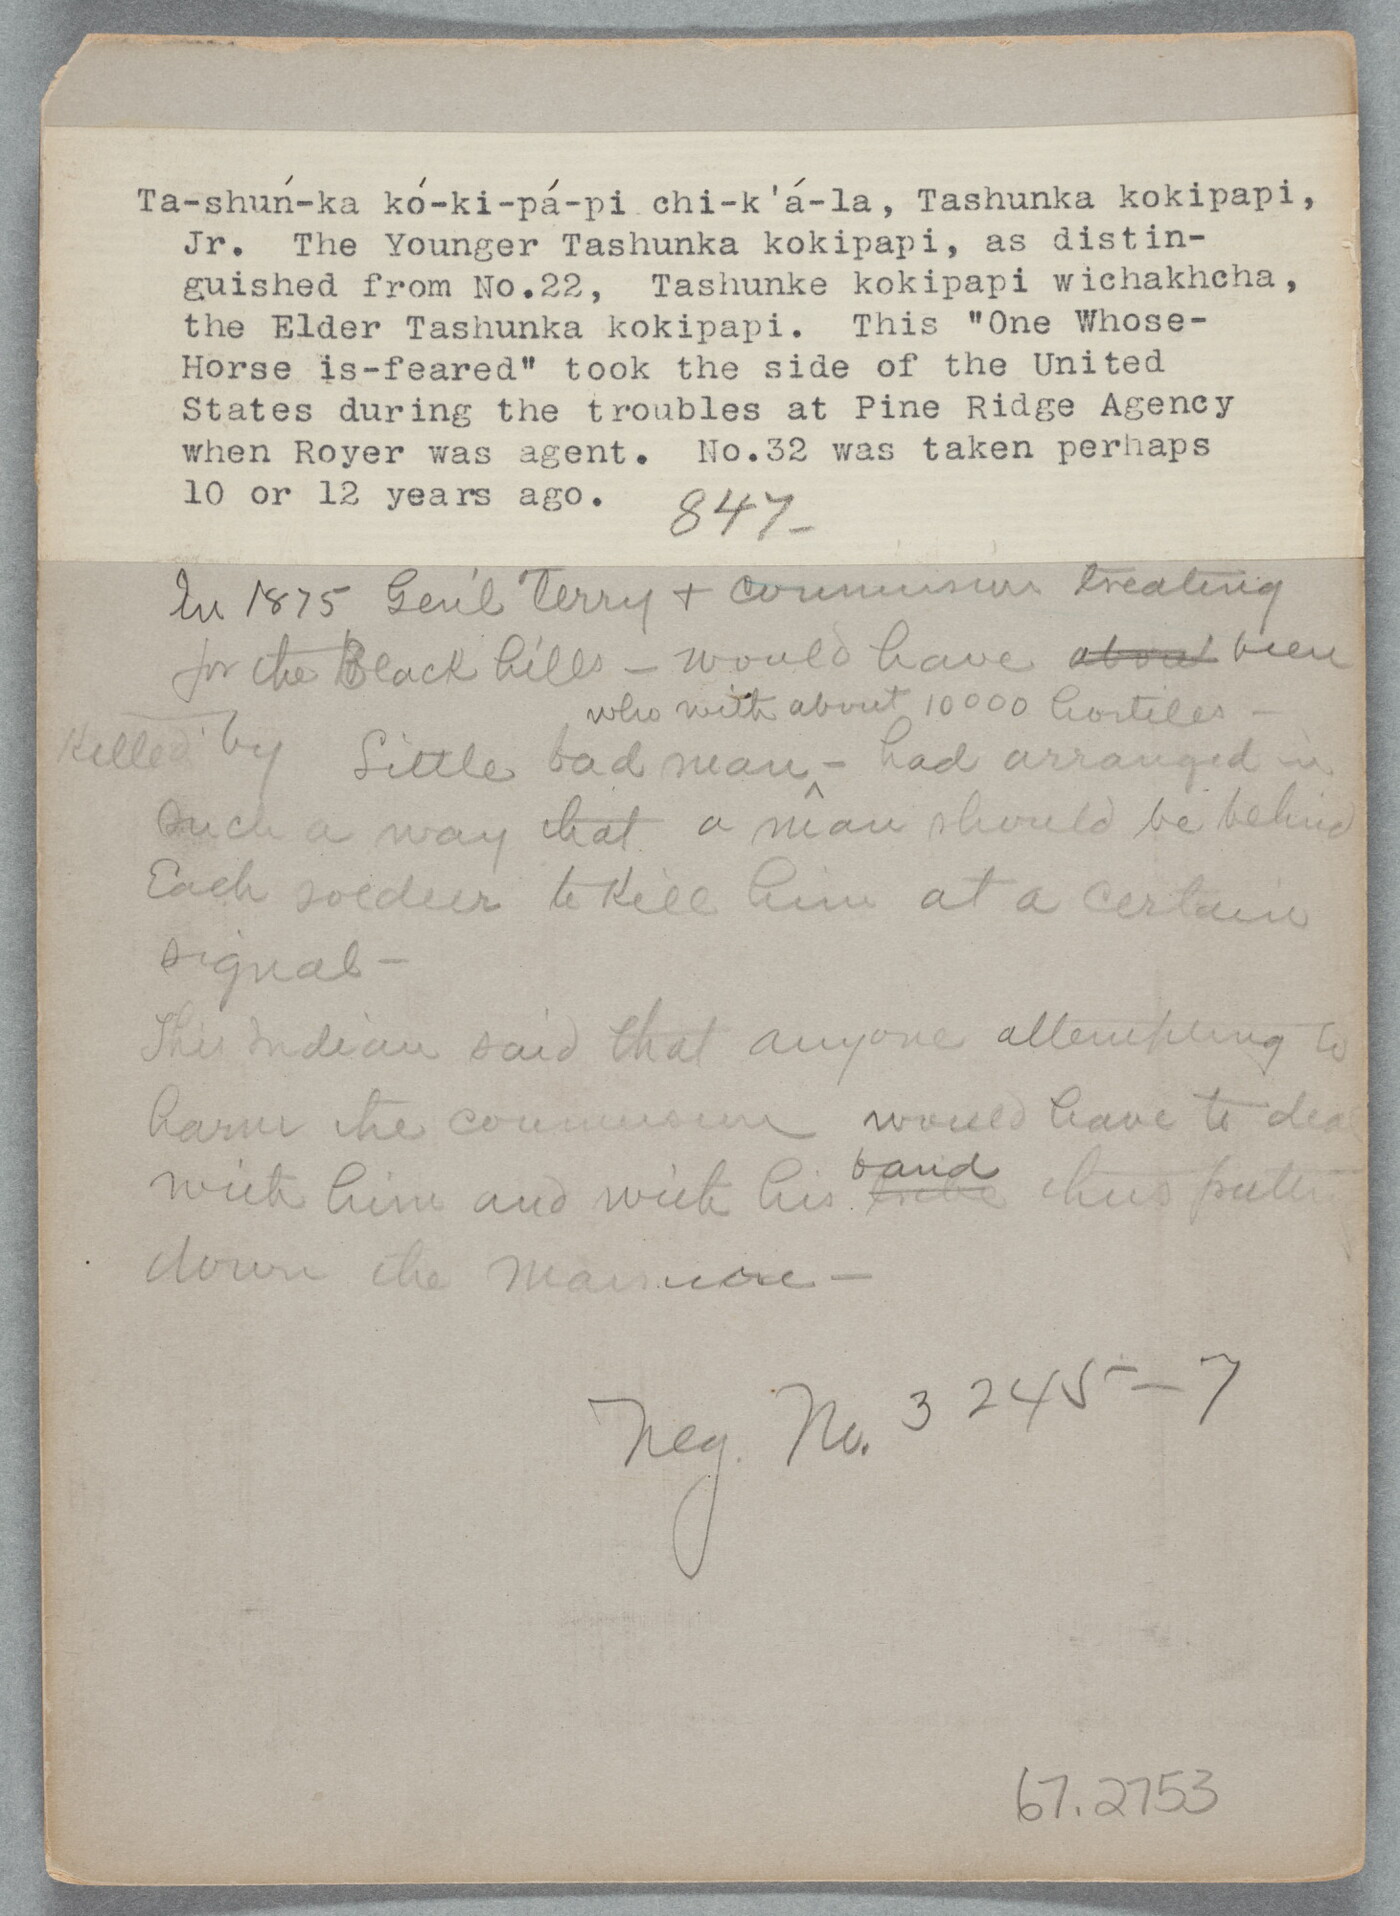 Ta-shuń-ka kó-ki-pá-pi chi-k'á-la, Tashunka kokipapi,
Jr. The Younger Tashunka kokipapi, as distin-
guished from No.22, Tashunke kokipapi wichakhcha,
the Elder Tashunka kokipapi. This "One Whose-
Horse is-feared" took the side of the United
States during the troubles at Pine Ridge Agency
when Royer was agent. No.32 was taken perhaps
10 or 12 years ago.
847-
In 1875 Gen'l Terry + commission treating
for the Black hills - would have about been
who with about 10000 hostiles -
Killed by Little bad man - had arranged in
such a way that a man should be behind
Each soldier to Kill him at a certain
signal -
This Indian said that anyone attempting to
harm the commission would have to deal
band
with him and with his tribe thus putting
down the massacre -
Neg. No. 3245-7
67.2753